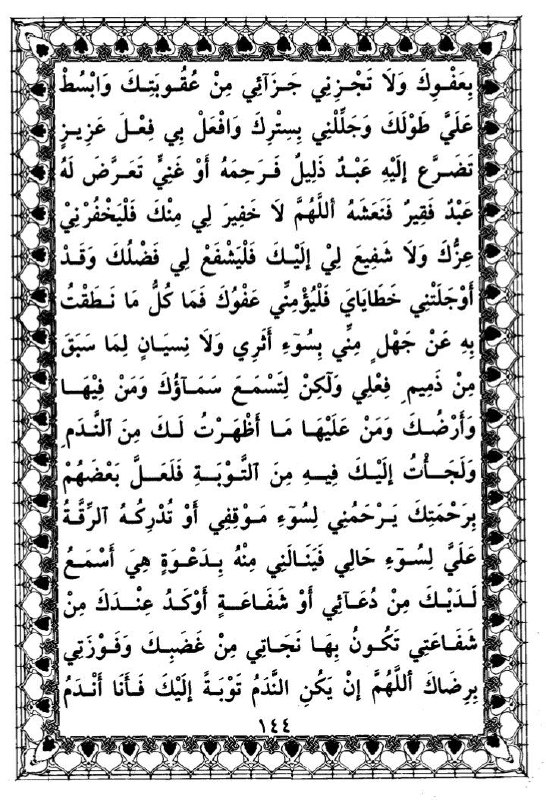 بِعَفْوِكَ وَلَا تَجْزِنِي جَزَآئِي مِنْ عُقُوبَتِكَ وَابْسُطْ
عَلَيَّ طَوْلَكَ وَجَلِّلْنِي بِسِتْرِكَ وَافْعَلْ بِي فِعْلَ عَزِيزٍ
تَضَرَّع إِلَيْهِ عَبْدٌ ذَلِيلٌ فَرَحِمَهُ أَوْ غَنِيٍّ تَعَرَّضَ لَهُ
عَبْدٌ فَقِيرٌ فَنَعَشَهُ أَللَّهُمَّ لَا خَفِيرَ لِي مِنْكَ فَلْيَخْفُرْنِيْ
عِزُّكَ وَلَا شَفِيعَ لِيْ إِلَيْكَ فَلْيَشْفَعْ لِي فَضْلُكَ وَقَدْ
أَوْجَلَتْنِي خَطَايَايَ فَلْيُؤْمِنِّي عَفْوُكَ فَمَا كُلُّ مَا نَطَقْتُ
بِهِ عَنْ جَهْلٍ مِنِّي بِسُوٓءِ أَثَرِي وَلَا نِسيَانٍ لِمَا سَبَقَ
مِنْ ذَمِيمِ فِعْلِي وَلَكِنْ لِتَسْمَعَ سَمَآؤُكَ وَمَنْ فِيْهَا
وَأَرْضُكَ وَمَنْ عَلَيْهَا مَا أَظْهَرْتُ لَكَ مِنَ النَّدَمِ
وَلَجَأْتُ إِلَيْكَ فِيهِ مِنَ التَّوْبَةِ فَلَعَلَّ بَعْضَهُمْ
بِرَحْمَتِكَ يَرْحَمُنِي لِسُوٓءِ مَوْقِفِي أَوْ تُدْرِكُهُ الرِّقَّةُ
عَلَيَّ لِسُوٓءِ حَالِي فَيَنَالَنِي مِنْهُ بِدَعْوَةٍ هِيَ أَسْمَعُ
لَدَيْكَ مِنْ دُعَآئِي أَوْ شَفَاعَةٍ أَوْكَدُ عِنْدَكَ مِنْ
شَفَاعَتِي تَكُونُ بِهَا نَجَاتِي مِنْ غَضَبِكَ وَفَوْزَتِي
بِرِضَاكَ أَللَّهُمَّ إِنْ يَكُنِ النَّدَمُ تَوْبَةً إِلَيْكَ فَأَنَا أَنْدَمُ
١٤٤